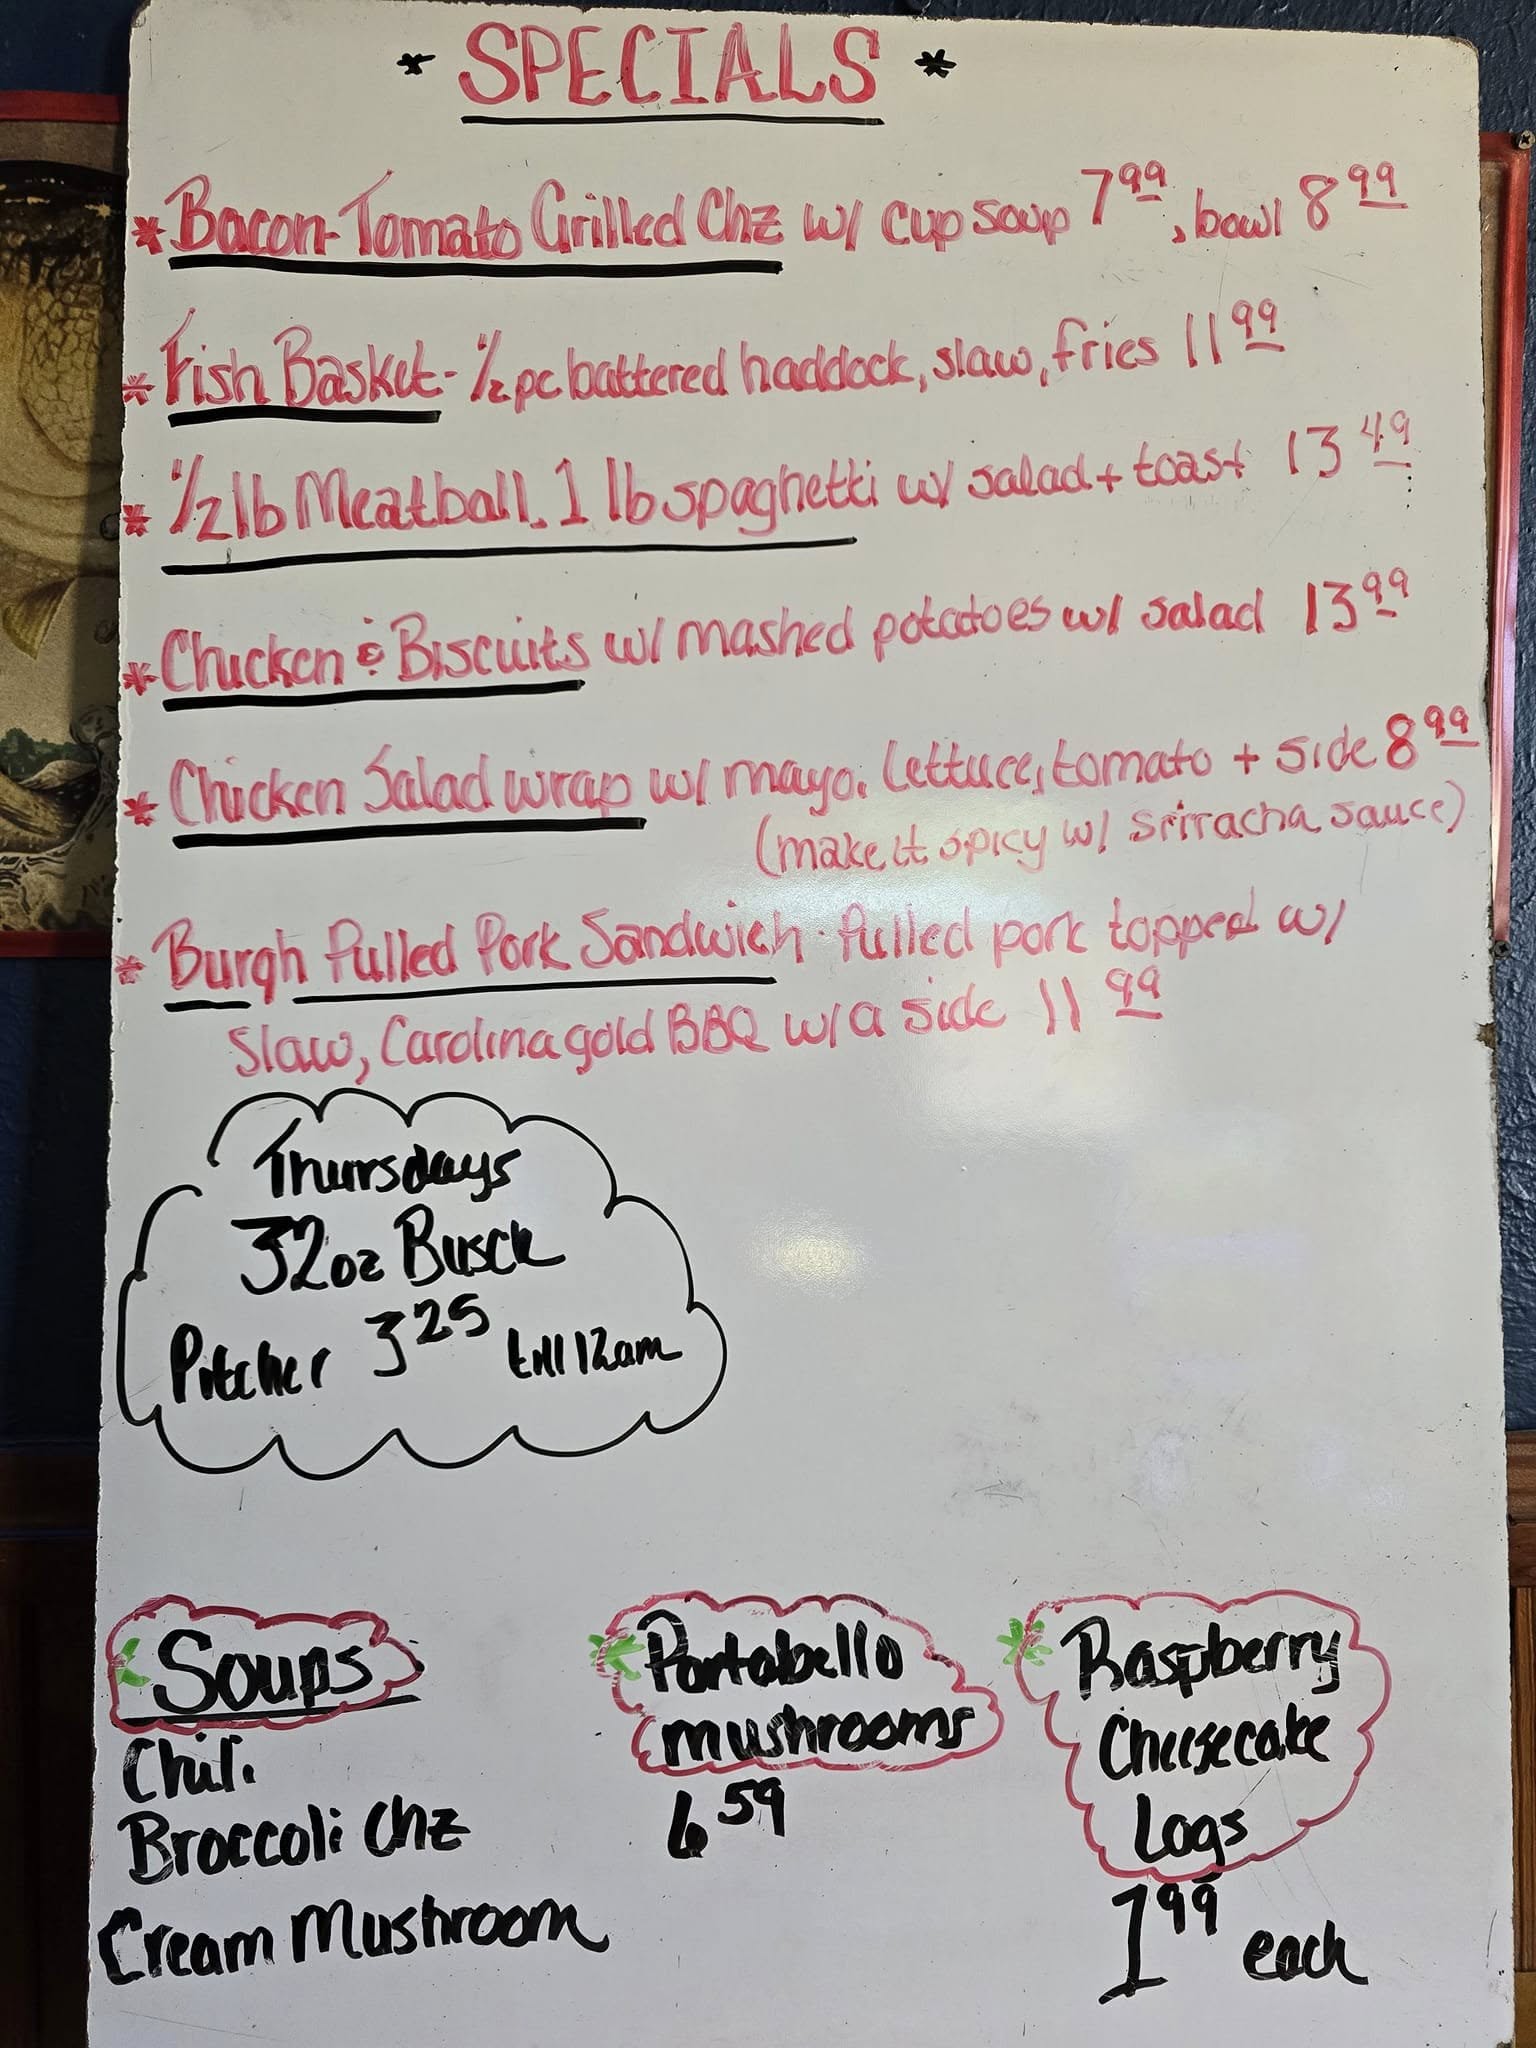 * SPECIALS *
* Bacon-Tomato Grilled Chz w/ cup soup 7.99, bowl 8.99
* Fish Basket - 1/2 pc battered haddock, slaw, fries 11.99
* 1/2 lb Meatball. 1 lb spaghetti w/ salad + toast 13.49
* Chicken & Biscuits w/ mashed potatoes w/ salad 13.99
* Chicken Salad wrap w/ mayo, lettuce, tomato + side 8.99
(make it spicy w/ sriracha sauce)
* Burgh Pulled Pork Sandwich - Pulled pork topped w/
slaw, Carolina gold BBQ w/ a side 11.99
Thursdays
32oz Busck
Pitcher 3.25 till 12am
* Soups
Chili
Broccoli Chz
Cream Mushroom
* Portabello
mushrooms
6.59
* Raspberry
Cheesecake
Logs
1.99 each